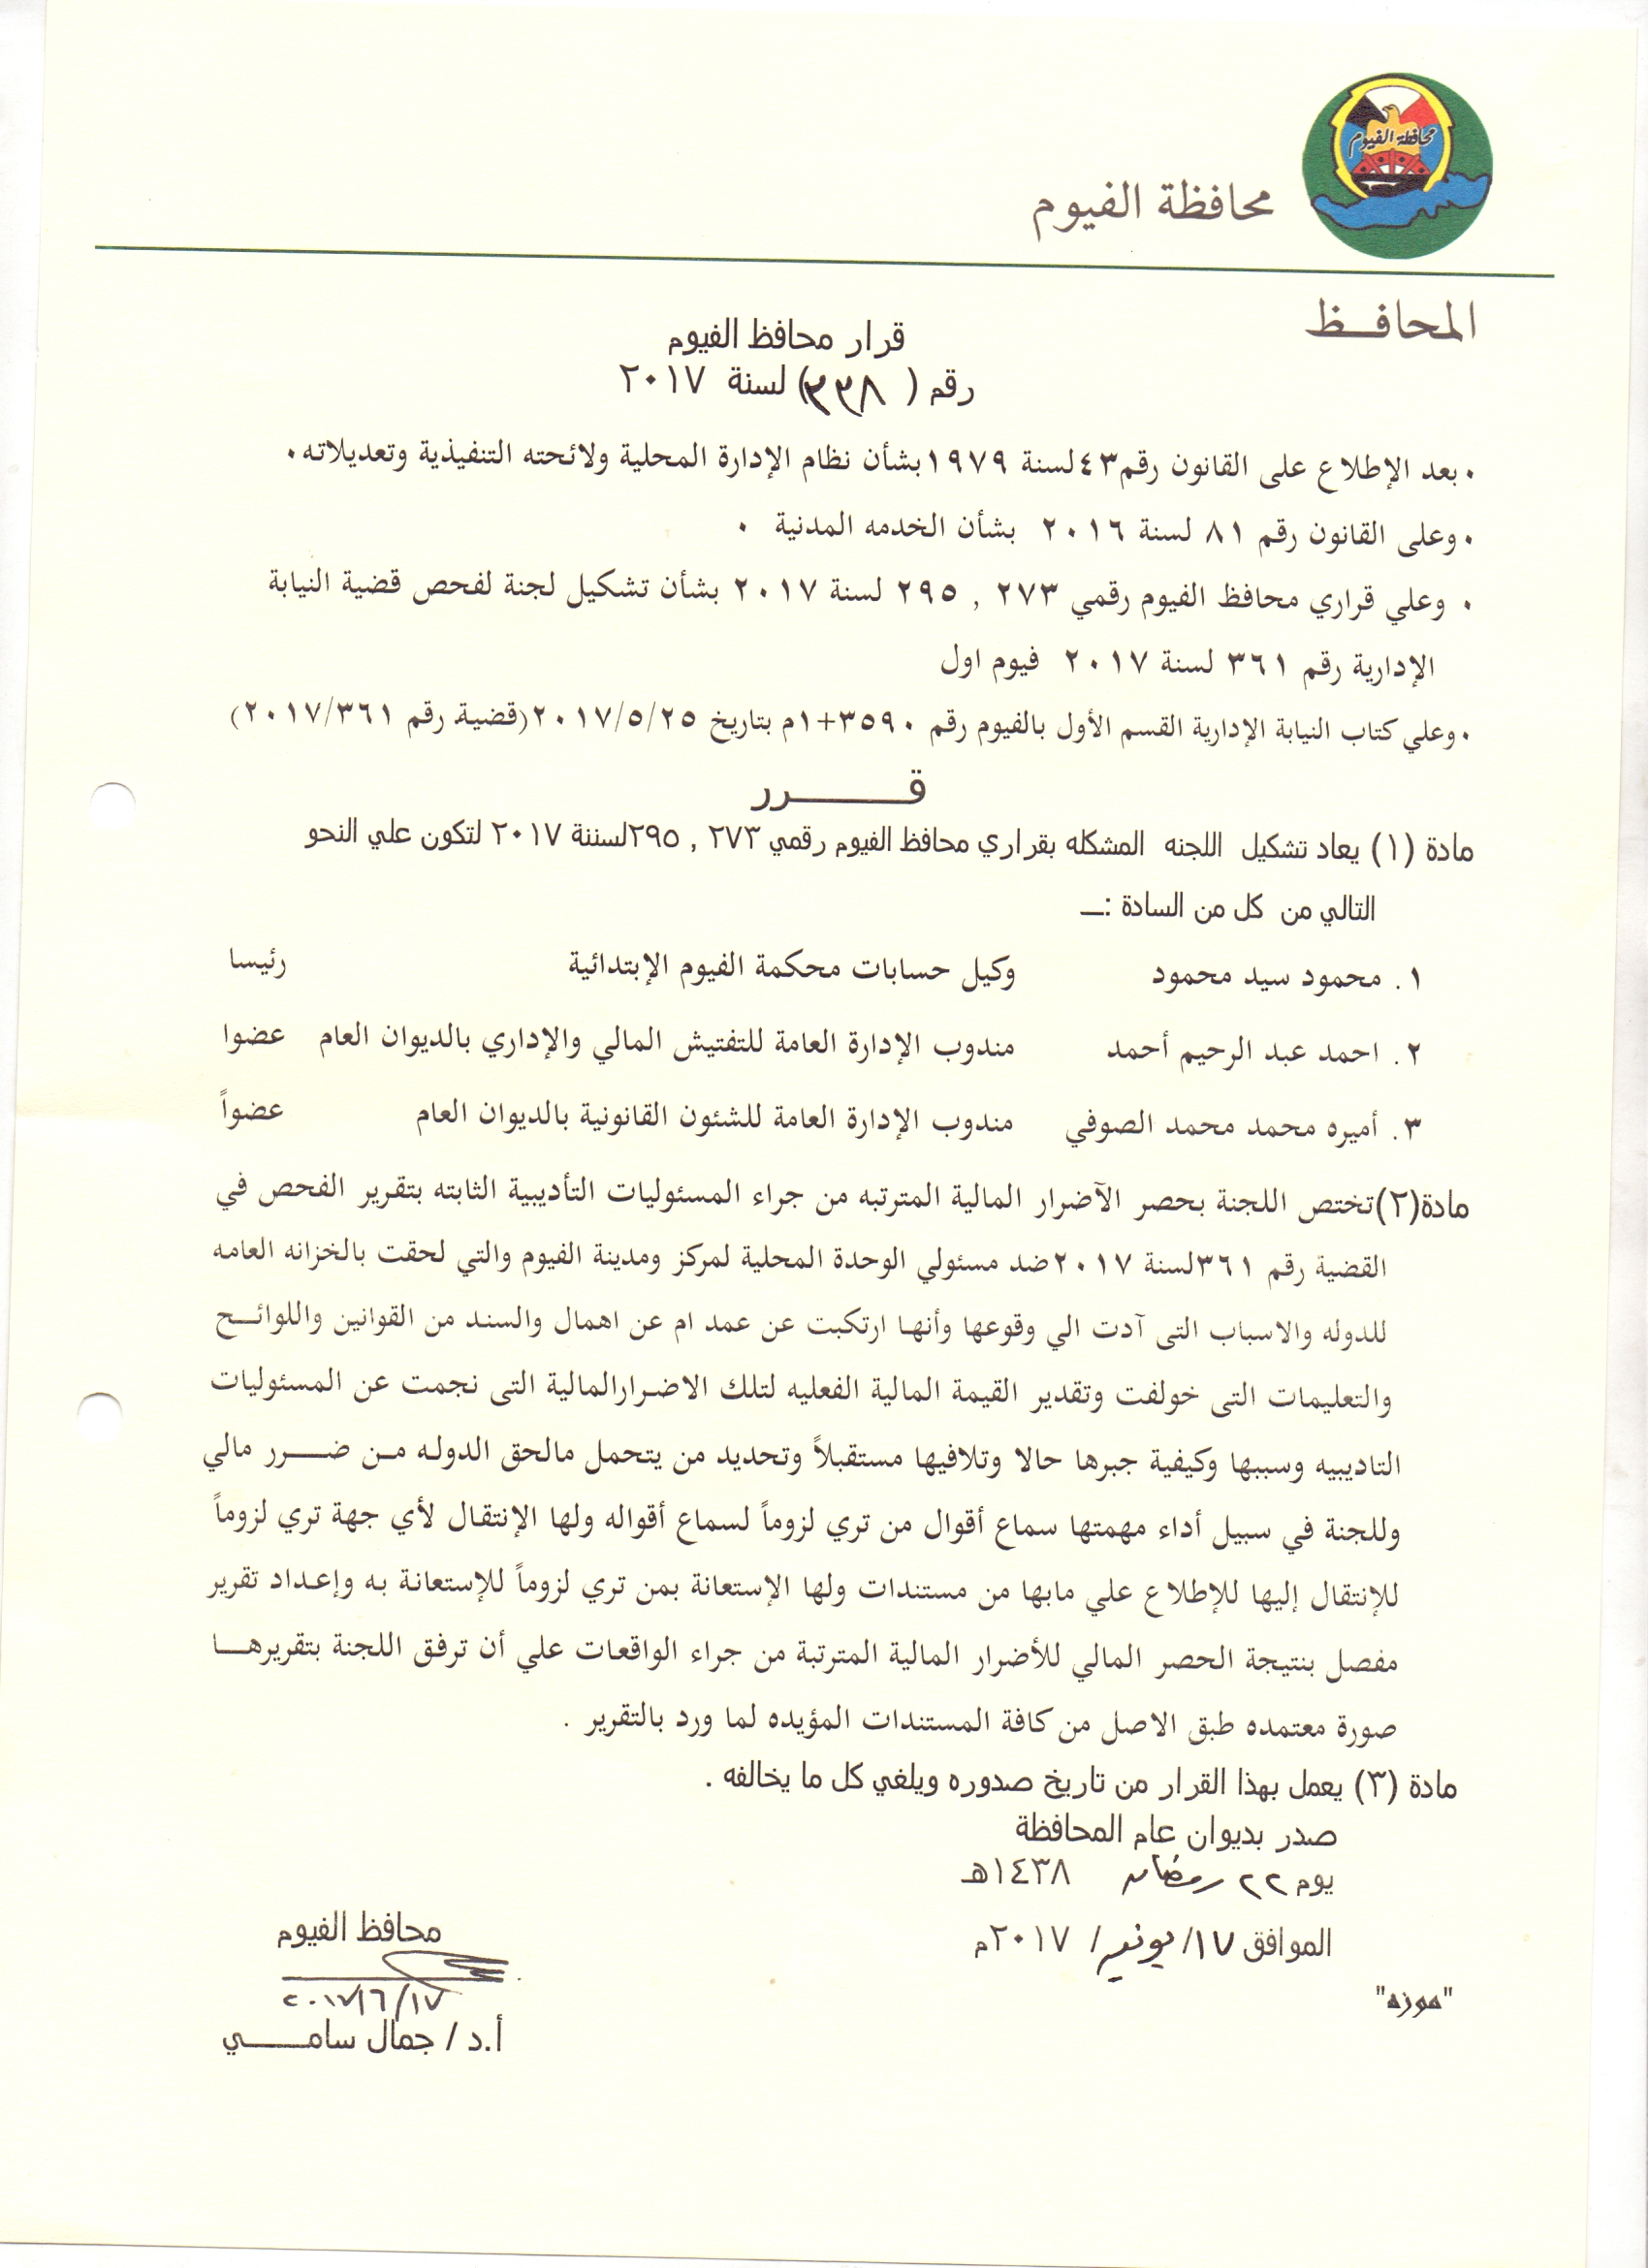 محافظة الفيوم
محافظة الفيوم
المحافـظ
قرار محافظ الفيوم
رقم ( ٣٣٨) لسنة ٢٠١٧
٠ بعد الإطلاع على القانون رقم٤٣لسنة ١٩٧٩بشأن نظام الإدارة المحلية ولائحته التنفيذية وتعديلاته٠
٠ وعلى القانون رقم ٨١ لسنة ٢٠١٦ بشأن الخدمه المدنية ٠
٠ وعلي قراري محافظ الفيوم رقمي ٢٧٣ , ٢٩٥ لسنة ٢٠١٧ بشأن تشكيل لجنة لفحص قضية النيابة
الإدارية رقم ٣٦١ لسنة ٢٠١٧ فيوم اول
٠ وعلي كتاب النيابة الإدارية القسم الأول بالفيوم رقم ٣٥٩٠+١م بتاريخ ٢٠١٧/٥/٢٥(قضية رقم ٢٠١٧/٣٦١)
قـــــرر
مادة (١) يعاد تشكيل اللجنه المشكله بقراري محافظ الفيوم رقمي ٢٧٣ , ٢٩٥لسننة ٢٠١٧ لتكون علي النحو
التالي من كل من السادة :ــ
١. محمود سيد محمود وكيل حسابات محكمة الفيوم الإبتدائية رئيسا
٢. احمد عبد الرحيم أحمد مندوب الإدارة العامة للتفتيش المالي والإداري بالديوان العام عضوا
٣. أميره محمد محمد الصوفي مندوب الإدارة العامة للشئون القانونية بالديوان العام عضواً
مادة(٢)تختص اللجنة بحصر الآضرار المالية المترتبه من جراء المسئوليات التأديبية الثابته بتقرير الفحص في
القضية رقم ٣٦١لسنة ٢٠١٧ضد مسئولي الوحدة المحلية لمركز ومدينة الفيوم والتي لحقت بالخزانه العامه
للدوله والاسباب التى آدت الي وقوعها وأنها ارتكبت عن عمد ام عن اهمال والسند من القوانين واللوائـــح
والتعليمات التى خولفت وتقدير القيمة المالية الفعليه لتلك الاضرارالمالية التى نجمت عن المسئوليات
التاديبيه وسببها وكيفية جبرها حالا وتلافيها مستقبلاً وتحديد من يتحمل مالحق الدوله مـن ضـــرر مالي
وللجنة في سبيل أداء مهمتها سماع أقوال من تري لزوماً لسماع أقواله ولها الإنتقال لأي جهة تري لزوماً
للإنتقال إليها للإطلاع علي مابها من مستندات ولها الإستعانة بمن تري لزوماً للإستعانة به وإعداد تقرير
مفصل بنتيجة الحصر المالي للأضرار المالية المترتبة من جراء الواقعات علي أن ترفق اللجنة بتقريرهـــا
صورة معتمده طبق الاصل من كافة المستندات المؤيده لما ورد بالتقرير .
مادة (٣) يعمل بهذا القرار من تاريخ صدوره ويلغي كل ما يخالفه .
صدر بديوان عام المحافظة
يوم ٢٢ رمضان ١٤٣٨هـ
الموافق ١٧/ يونيه/ ٢٠١٧م
محافظ الفيوم
٢٠١٧/٦/١٧
"موزه"
أ.د / جمال سامـــــي